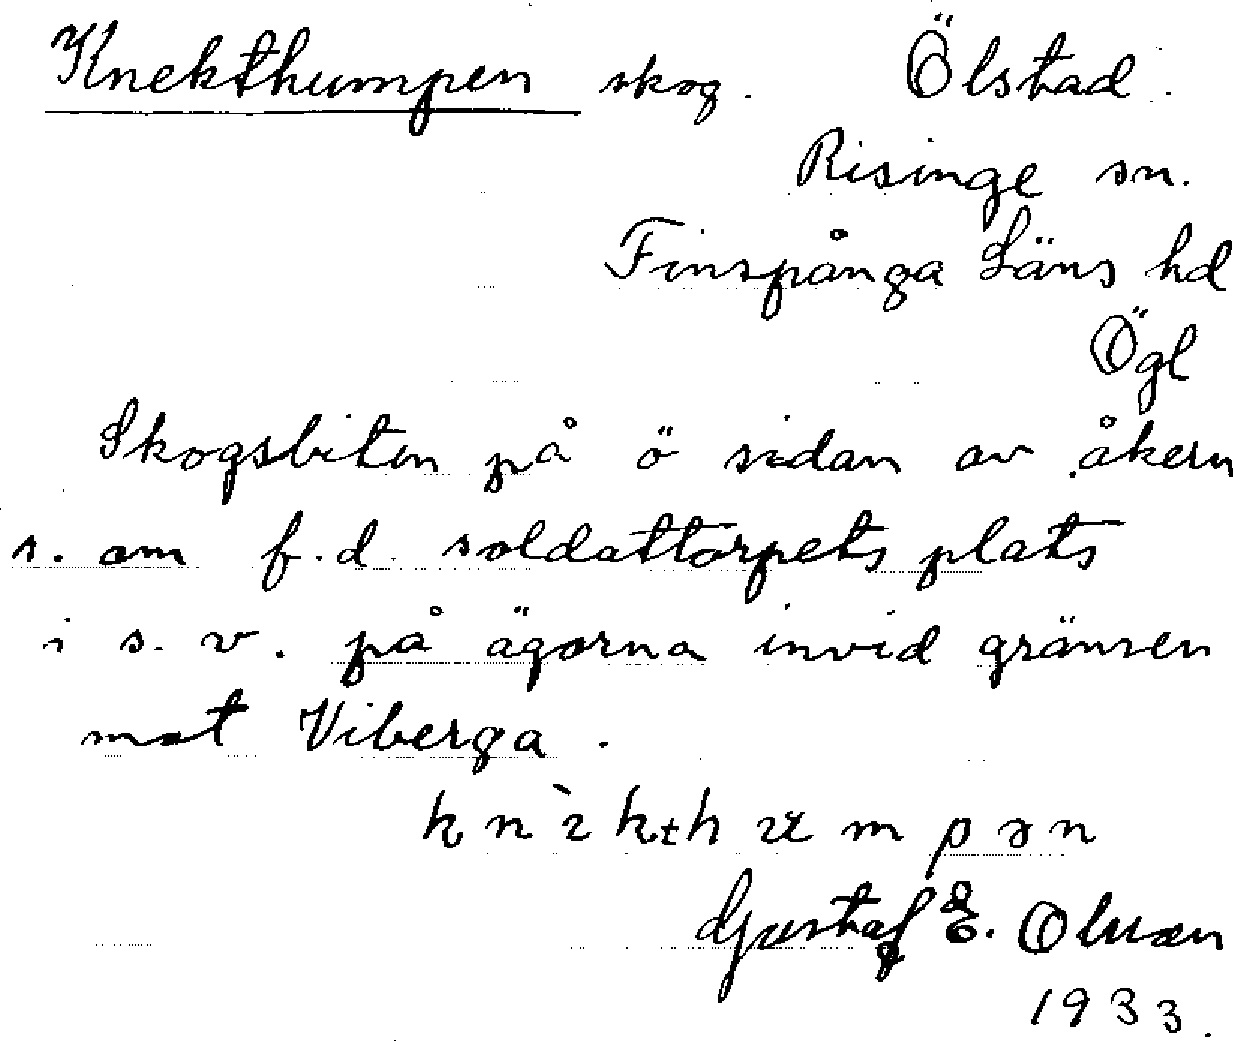 Knekthumpen skog. Ölstad.
Risinge sn.
Finspånga Läns hd
Ögl
Skogsbiten på ö sidan av åkern
s. om f.d. soldattorpets plats
i s.v. på ägorna invid gränsen
mot Viberga.
Gustaf E. Olsson
1933.